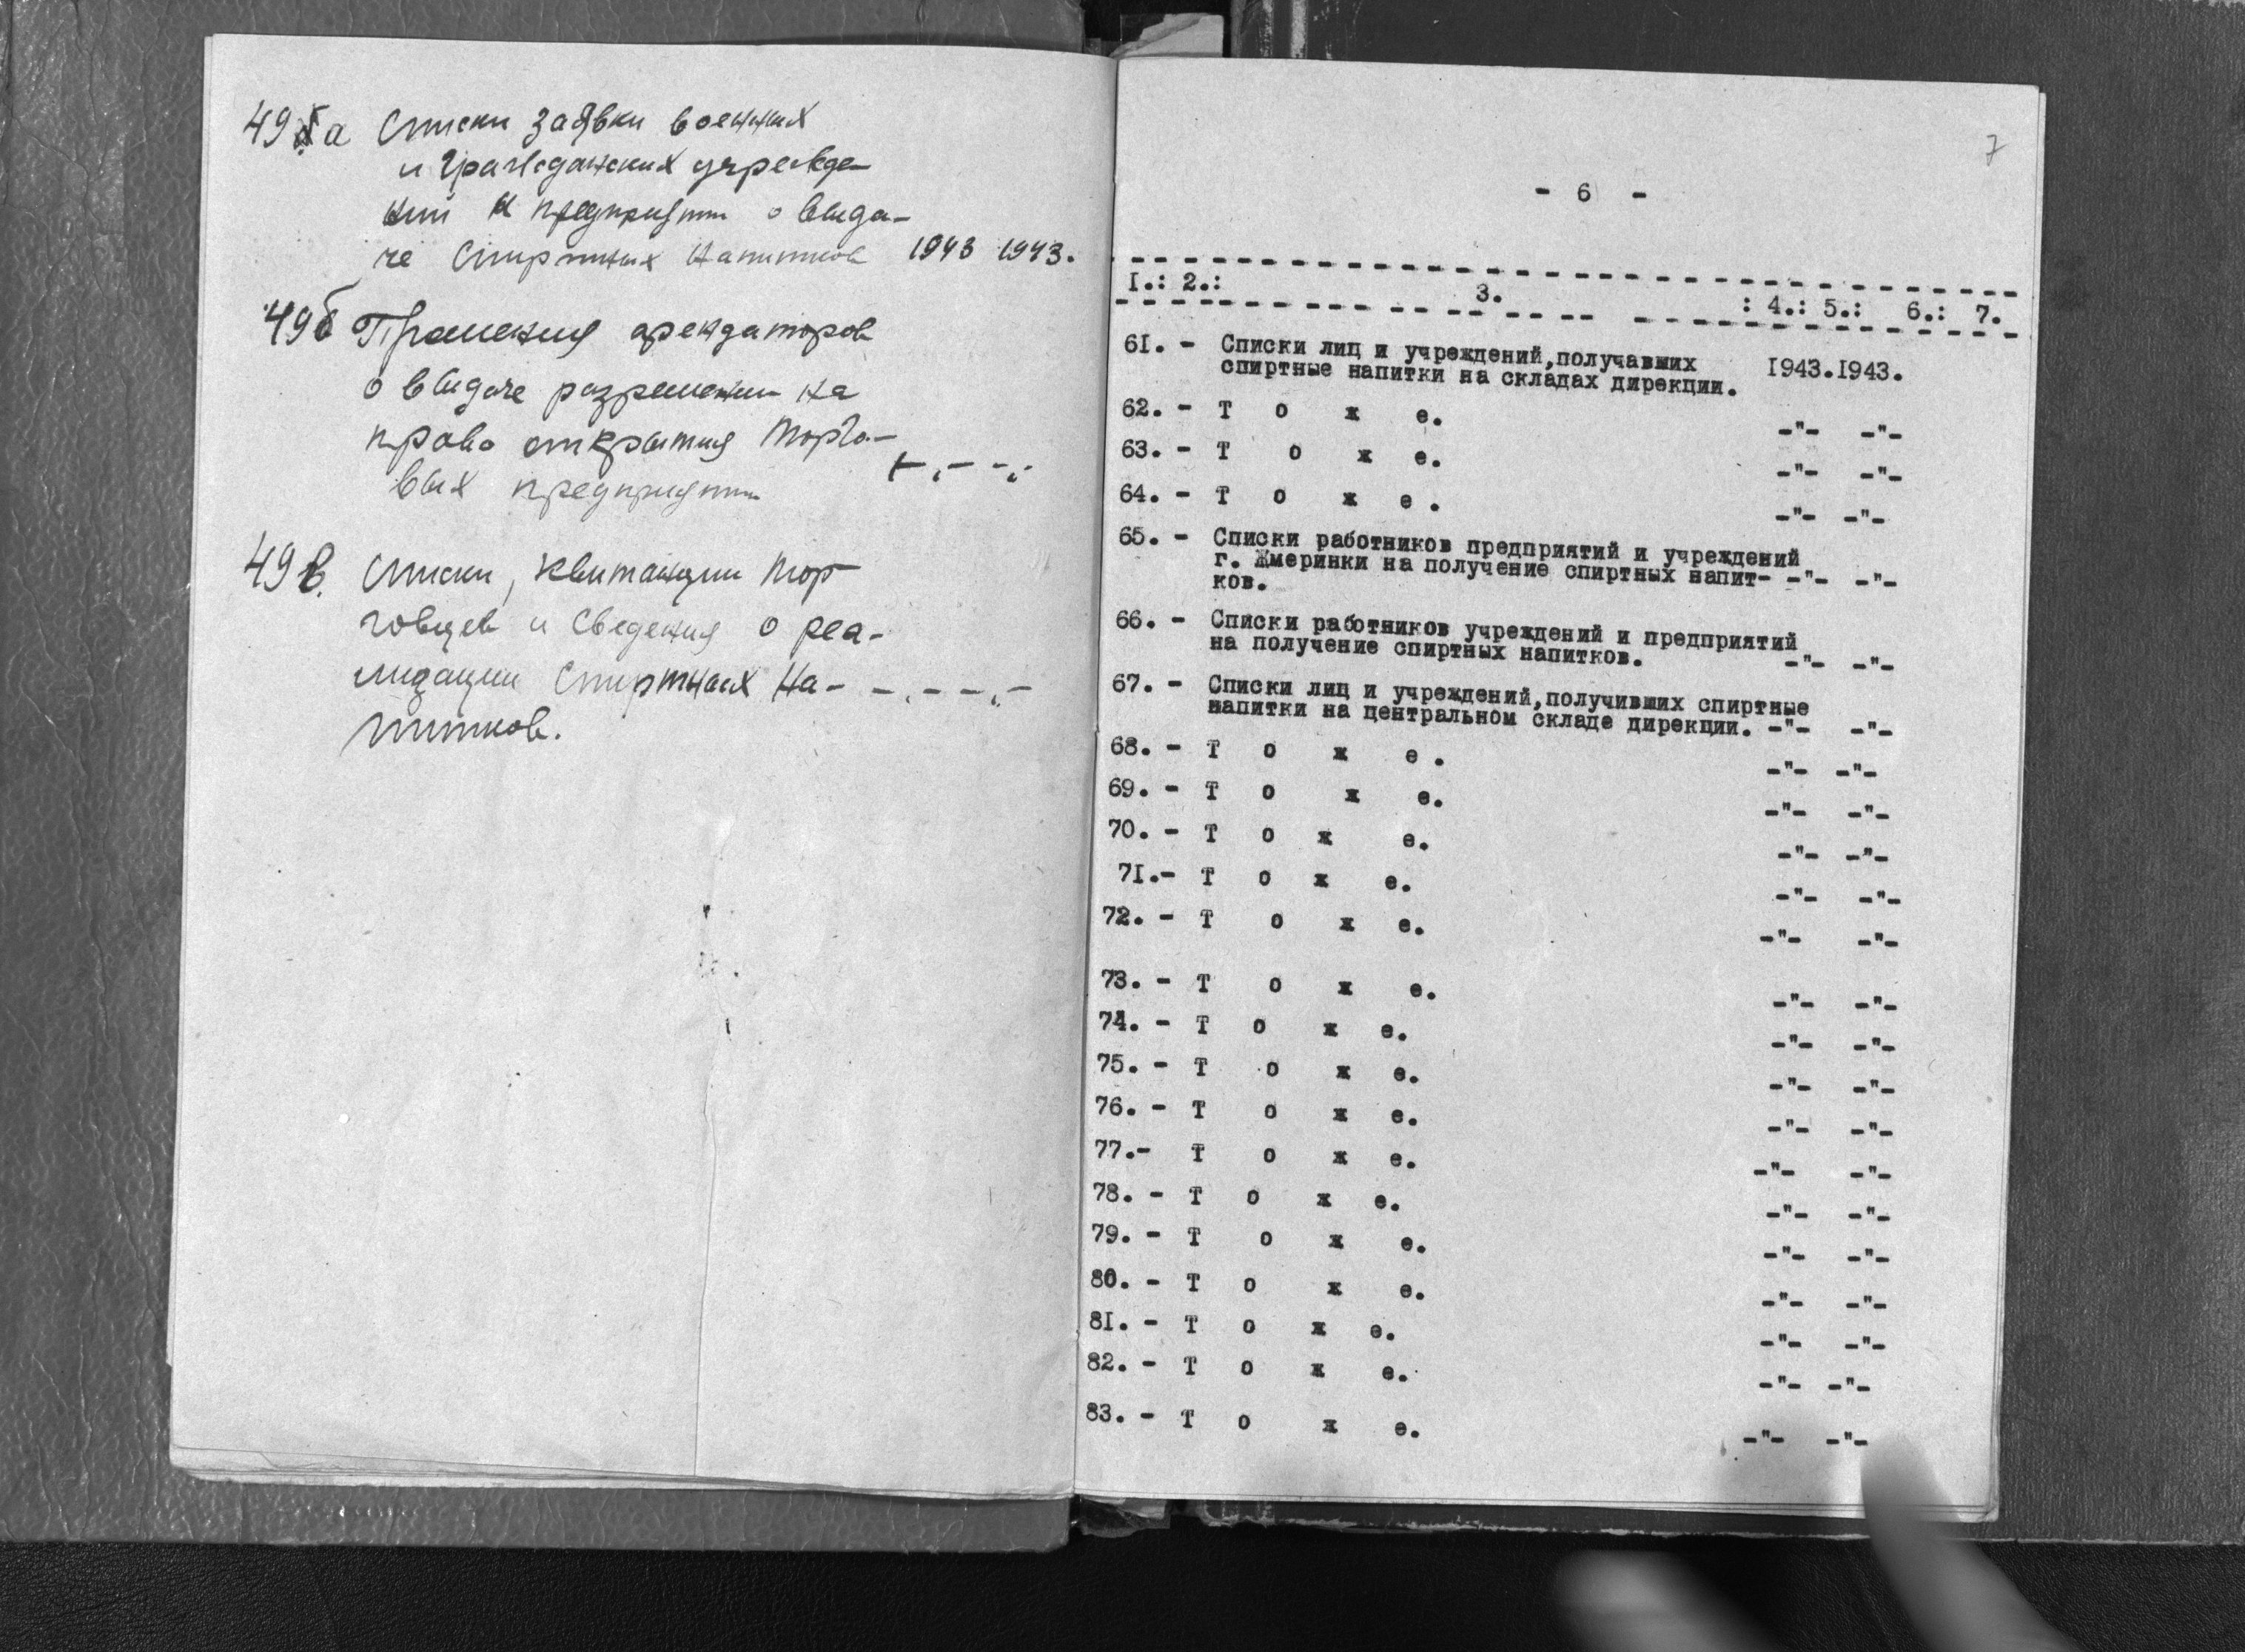 49а Списки заявки военных
и гражданских учрежде-
ний и предприятий о выда-
че спиртных напитков 1943 1943.
49б Прошения арендаторов
о выдаче разрешений на
право открытия торго-
вых предприятий -„- -„-
49в. Списки, квитанции тор
говцев и сведения о реа-
лизации спиртных на- -„- -„-
питков.
7
- 6 -
I.: 2.: 3. : 4.: 5.: 6.: 7.
61. - Списки лиц и учреждений,получавших 1943.1943.
спиртные напитки на складах дирекции.
62. - Т о ж е. -"- -"-
63. - Т о ж е. -"- -"-
64. - Т о ж е. -"- -"-
65. - Списки работников предприятий и учреждений
г. Жмеринки на получение спиртных напит- -"- -"-
ков.
66. - Списки работников учреждений и предприятий
на получение спиртных напитков. -"- -"-
67. - Списки лиц и учреждений,получивших спиртные
напитки на центральном складе дирекции. -"- -"-
68. - Т о ж е. -"- -"-
69. - Т о ж е. -"- -"-
70. - Т о ж е. -"- -"-
7I.- Т о ж е. -"- -"-
72. - Т о ж е. -"- -"-
73. - Т о ж е. -"- -"-
74. - Т о ж е. -"- -"-
75. - Т о ж е. -"- -"-
76. - Т о ж е. -"- -"-
77.- Т о ж е. -"- -"-
78. - Т о ж е. -"- -"-
79. - Т о ж е. -"- -"-
80. - Т о ж е. -"- -"-
8I. - Т о ж е. -"- -"-
82. - Т о ж е. -"- -"-
83. - Т о ж е. -"- -"-